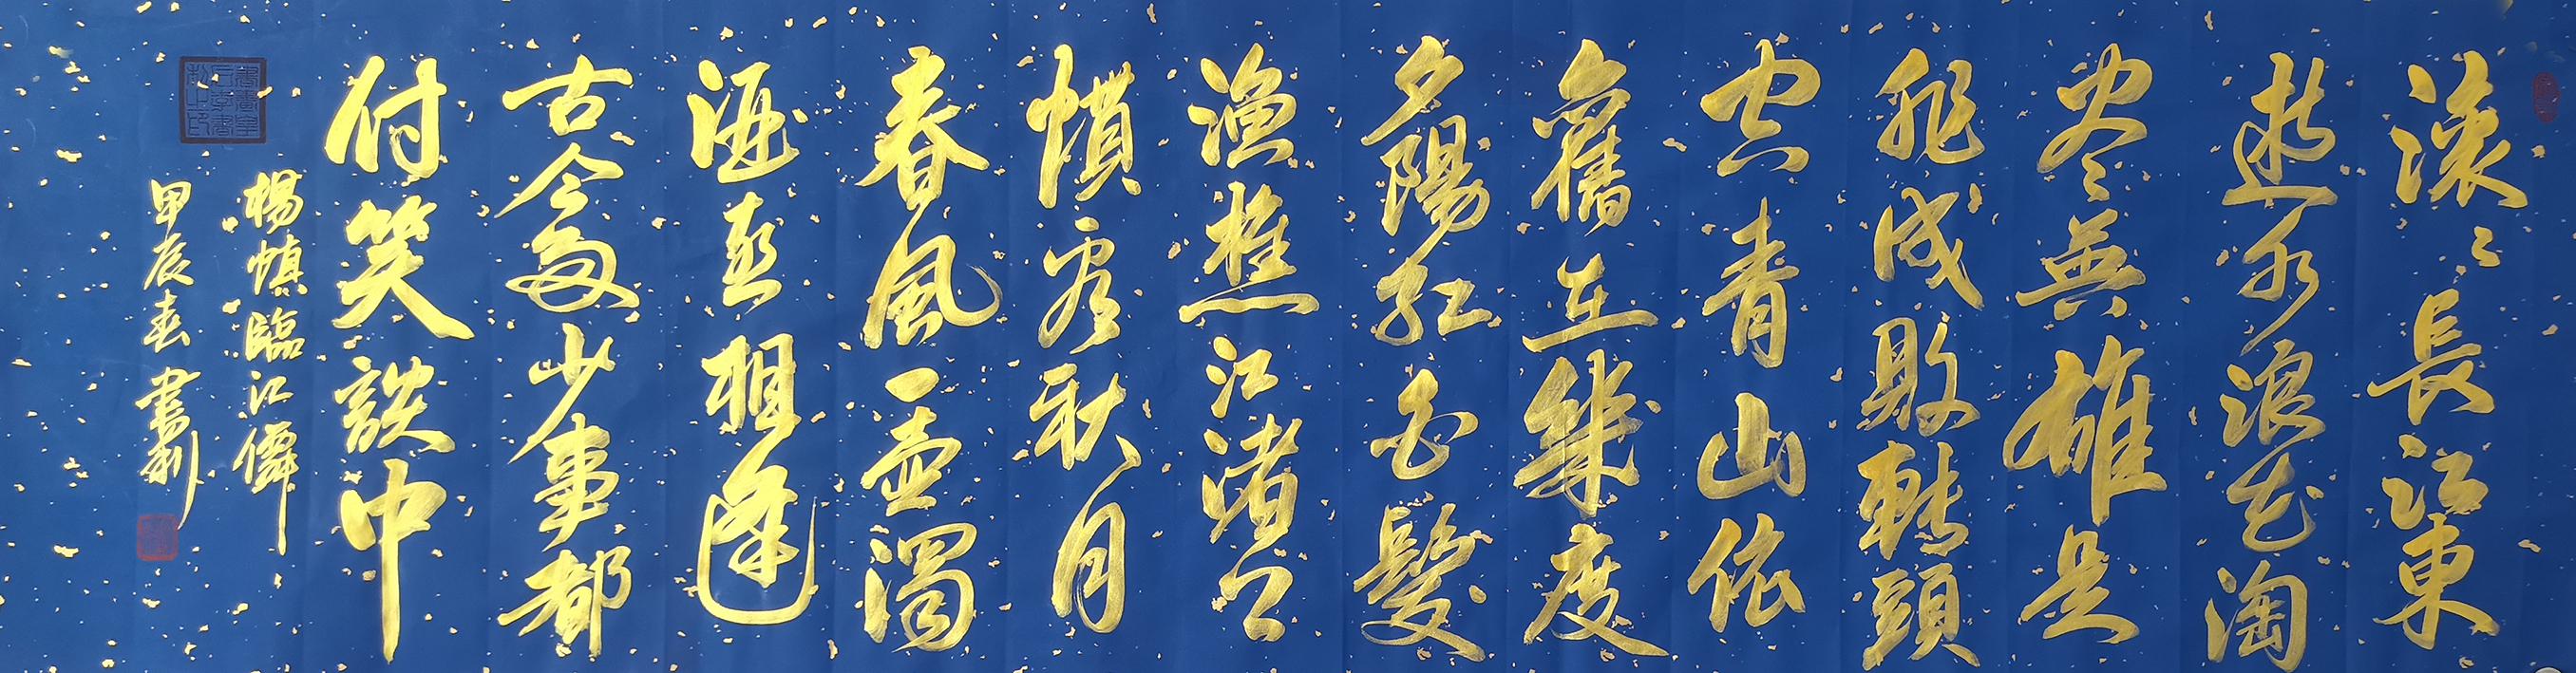 滚〻長江東
逝水浪花淘
尽英雄是
非成敗轉頭
空青山依
舊在幾度
夕陽紅白髮
渔樵江渚上
慣看秋月
春風一壺濁
酒喜相逢
古今多少事都
付笑談中
楊慎臨江僊
甲辰春書利
書畫皇后李書利之印